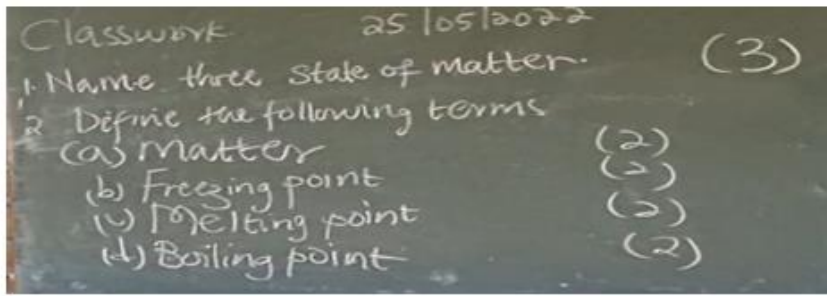 Classwork 25/05/2022
1. Name three state of matter. (3)
2 Define the following terms
(a) Matter (2)
(b) Freezing point (2)
(c) Melting point (2)
(d) Boiling point (2)